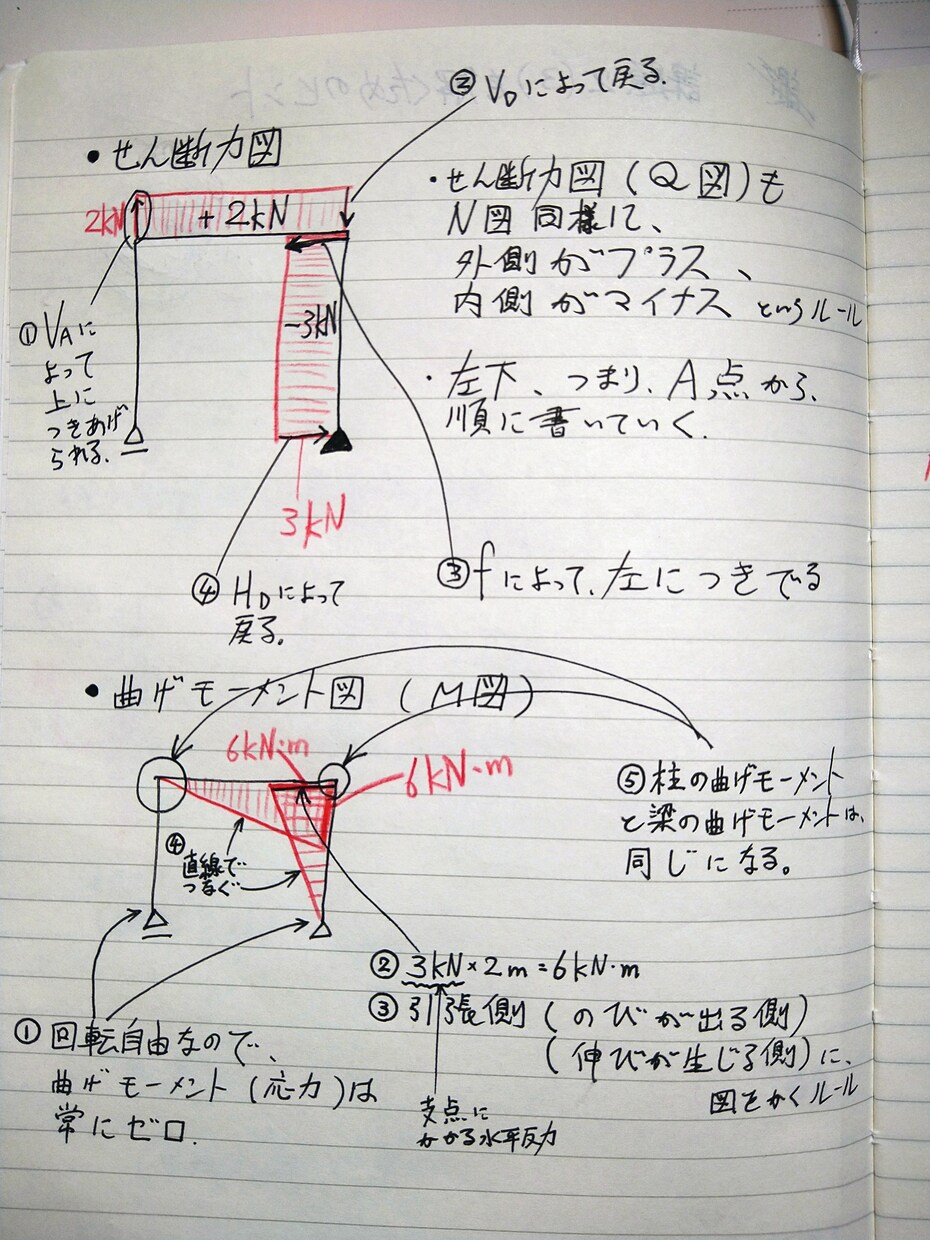 ② VDによって戻る.
・せん断力図
2kN
+2kN
・せん断力図(Q図)も
N図同様に、
外側がプラス、
内側がマイナス というルール
-3kN
① VAに
よって
上に
つきあげ
られる.
・左下、つまり、A点から、
順に書いていく.
3kN
④ HDによって
戻る.
③ fによって、左につきでる
・曲げモーメント図(M図)
6kN·m
6kN·m
⑤柱の曲げモーメント
と梁の曲げモーメントは、
同じになる。
④
直線で
つなぐ
② 3kN×2m=6kN·m
③ 引張側(のびが出る側)
(伸びが生じる側)に、
図をかくルール
① 回転自由なので、
曲げモーメント(応力)は
常にゼロ.
支点に
かかる水平反力